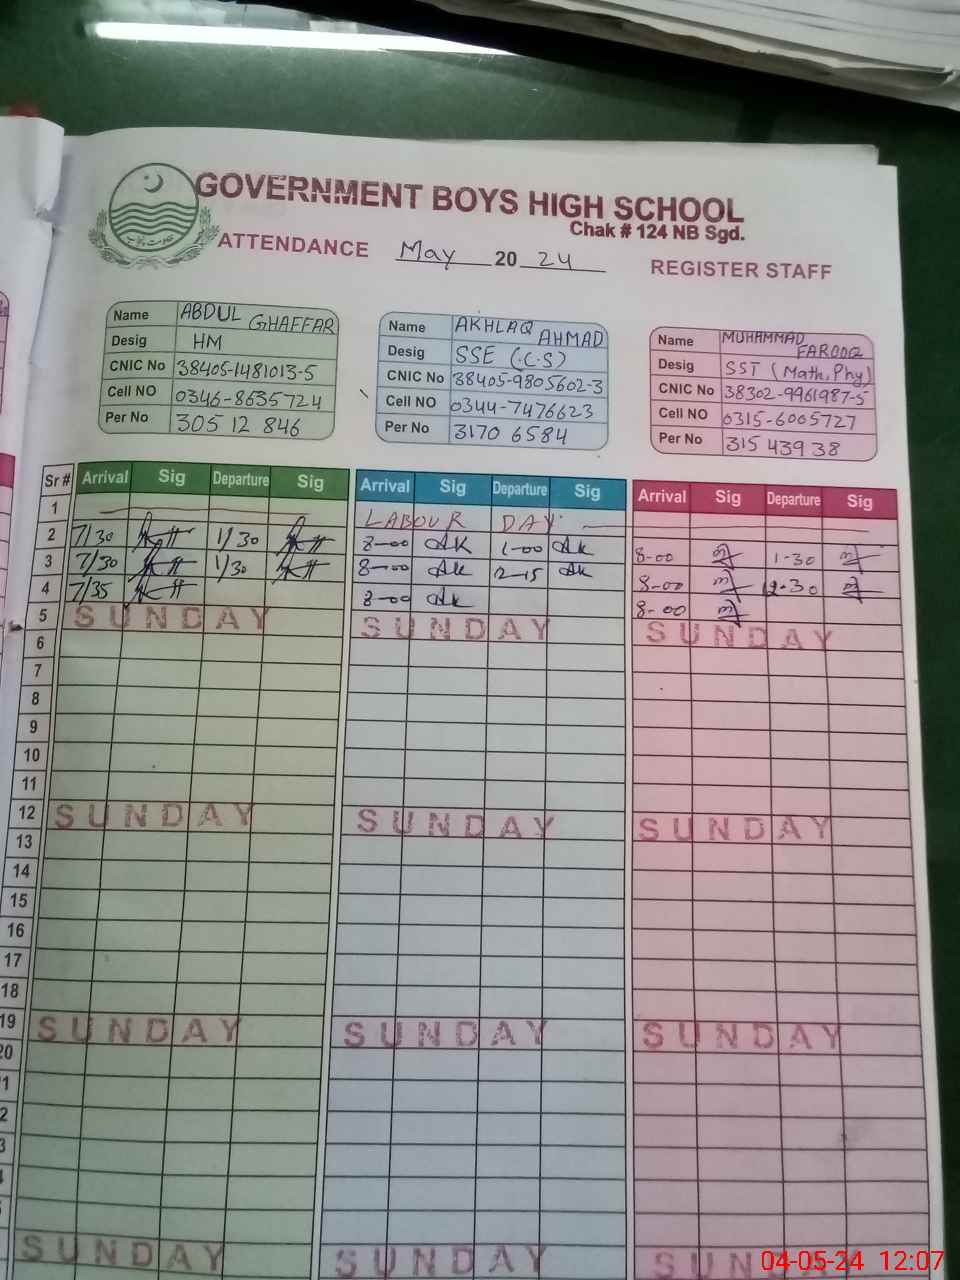 GOVERNMENT BOYS HIGH SCHOOL
Chak # 124 NB Sgd.
ATTENDANCE May 20 24 REGISTER STAFF
Name ABDUL GHAFFAR
Desig HM
CNIC No 38405-1481013-5
Cell NO 0346-8635724
Per No 305 12 846
Name AKHLAQ AHMAD
Desig SSE (C.S)
CNIC No 38405-9805602-3
Cell NO 0344-7476623
Per No 3170 6584
Name MUHAMMAD FAROOQ
Desig SST (Math, Phy)
CNIC No 38302-9961987-5
Cell NO 0315-6005727
Per No 315 439 38
Sr # Arrival Sig Departure Sig Arrival Sig Departure Sig Arrival Sig Departure Sig
1 LABOUR DAY
2 7/30 1/30 8-00 AK 1-00 AK 8-00 1-30
3 7/30 1/30 8-00 AK 12-15 AK 8-00 12-30
4 7/35 8-00 AK 8-00
5 SUNDAY SUNDAY SUNDAY
6
7
8
9
10
11
12 SUNDAY SUNDAY SUNDAY
13
14
15
16
17
18
19 SUNDAY SUNDAY SUNDAY
20
SUNDAY SUNDAY SUNDAY
04-05-24 12:07